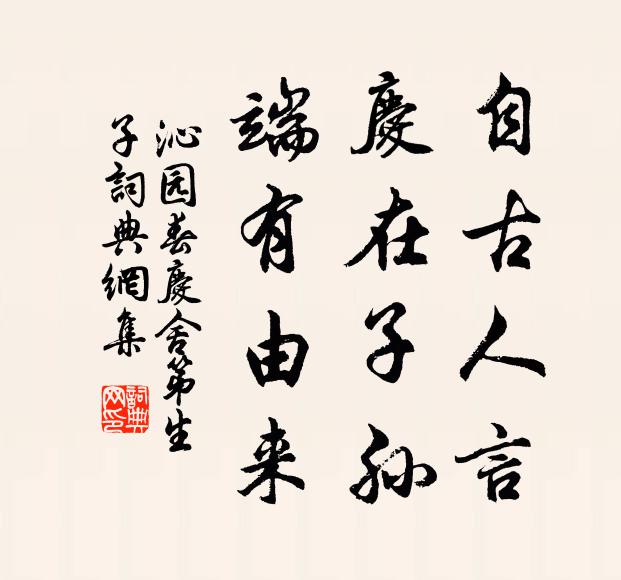 自古人言
慶在子孙
端有由来
沁园春慶舍第生
子詞典網集
詞典网印